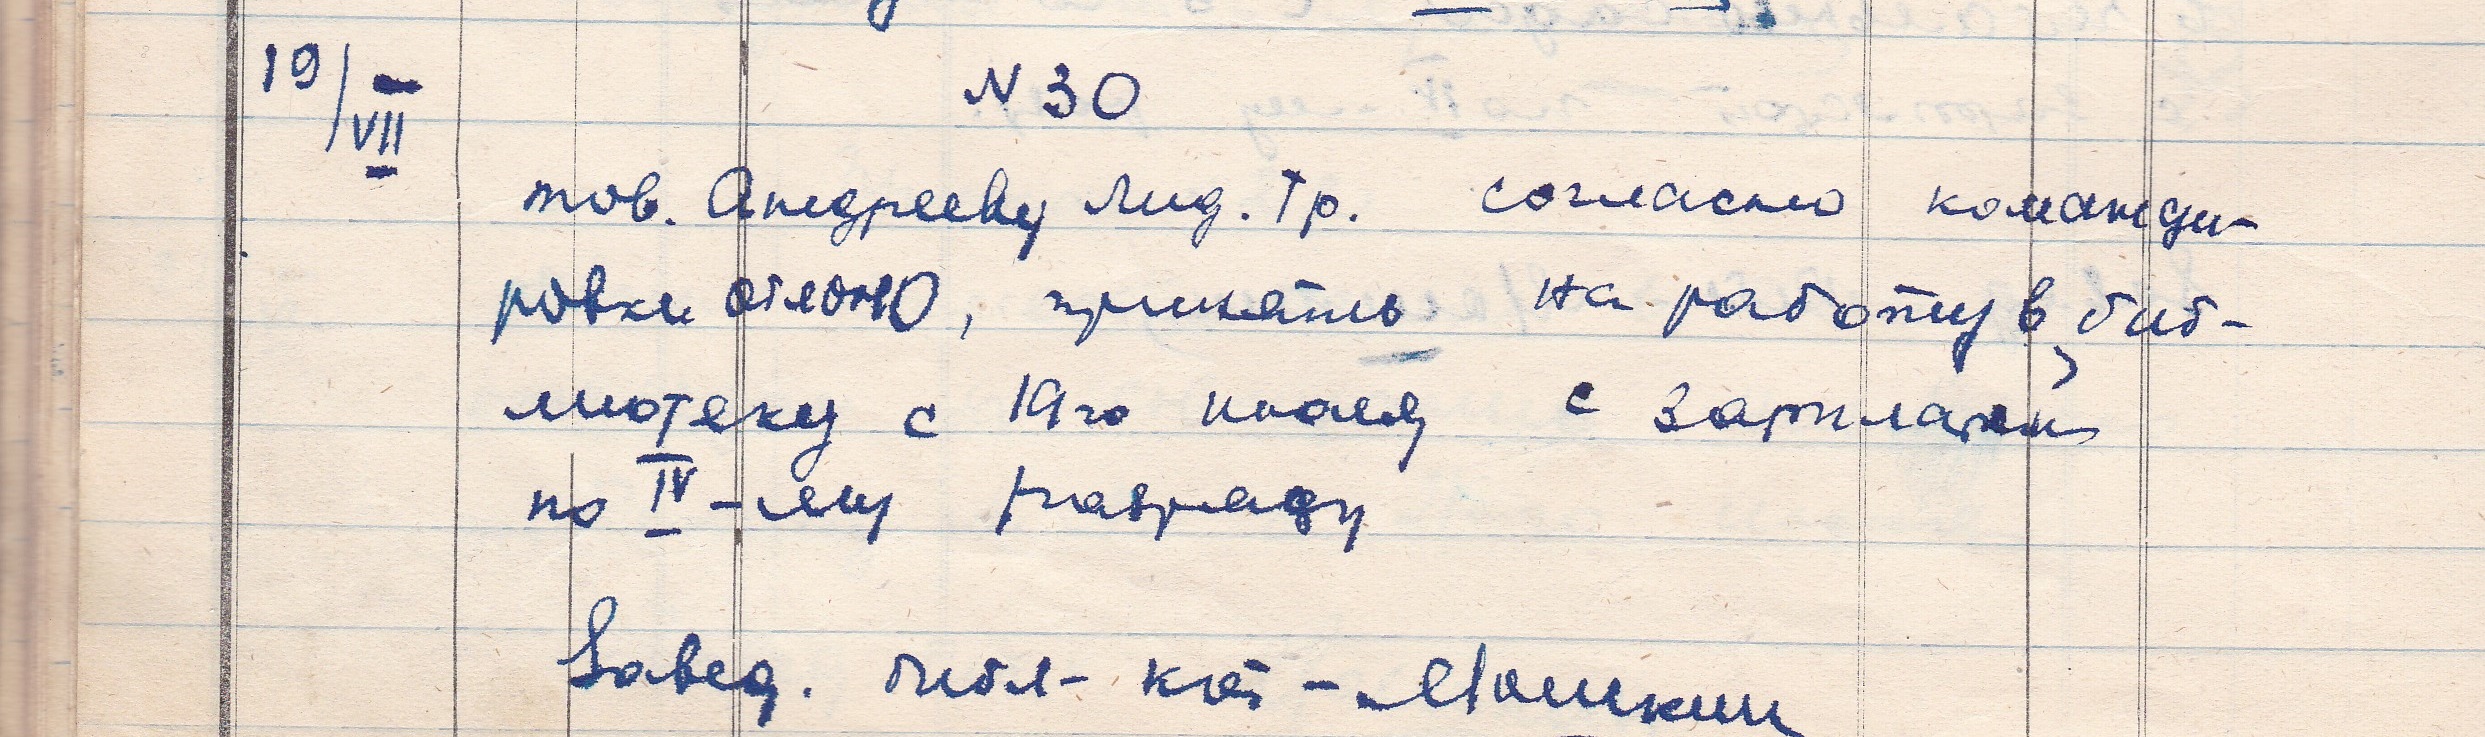 19/VII
N 30
тов. Андрееву Лид. Гр. согласно команди-
ровки, принять на работу в биб-
лиотеку с 19го июля с зарплатой
по IV-му разряду
Завед. библ-кой - Мошкин